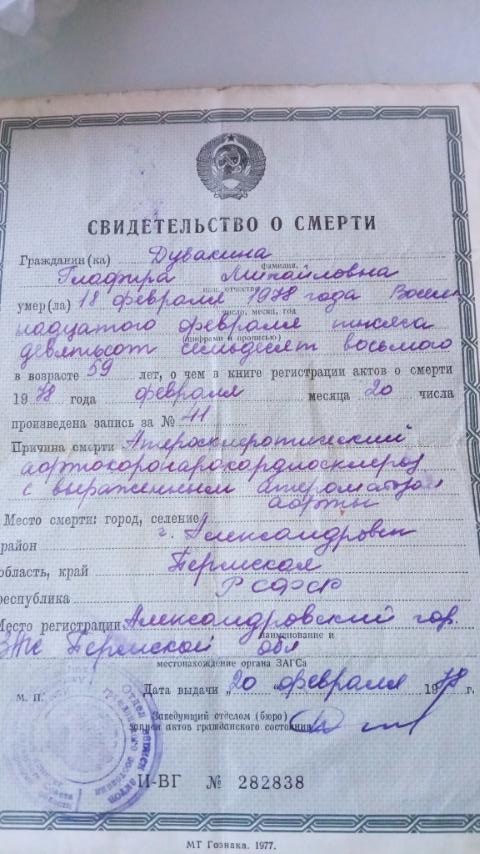 СВИДЕТЕЛЬСТВО О СМЕРТИ
Гражданин(ка) Дувакина
фамилия,
Глафира Михайловна
имя, отчество
умер(ла) 18 февраля 1978 года Восем
число, месяц, год
надцатого февраля тысяса
(цифрами и прописью)
девятьсот семьдесят восьмого
в возрасте 59 лет, о чем в книге регистрации актов о смерти
1978 года февраля месяца 20 числа
произведена запись за № 11
Причина смерти Атеросклеротический
аортокоронарокардиосклероз
с выраженным атероматозом
аорты
Место смерти: город, селение
г. Александровск
район
область, край Пермская
республика РСФСР
Место регистрации Александровский гор.
наименование и
ЗАГС Пермской обл
местонахождение органа ЗАГСа
Дата выдачи „20 февраля 1978 г.
М. П.
Заведующий отделом (бюро)
записи актов гражданского состояния
Отдел записи актов
гражданского состояния
II-ВГ № 282838
МТ Гознака. 1977.